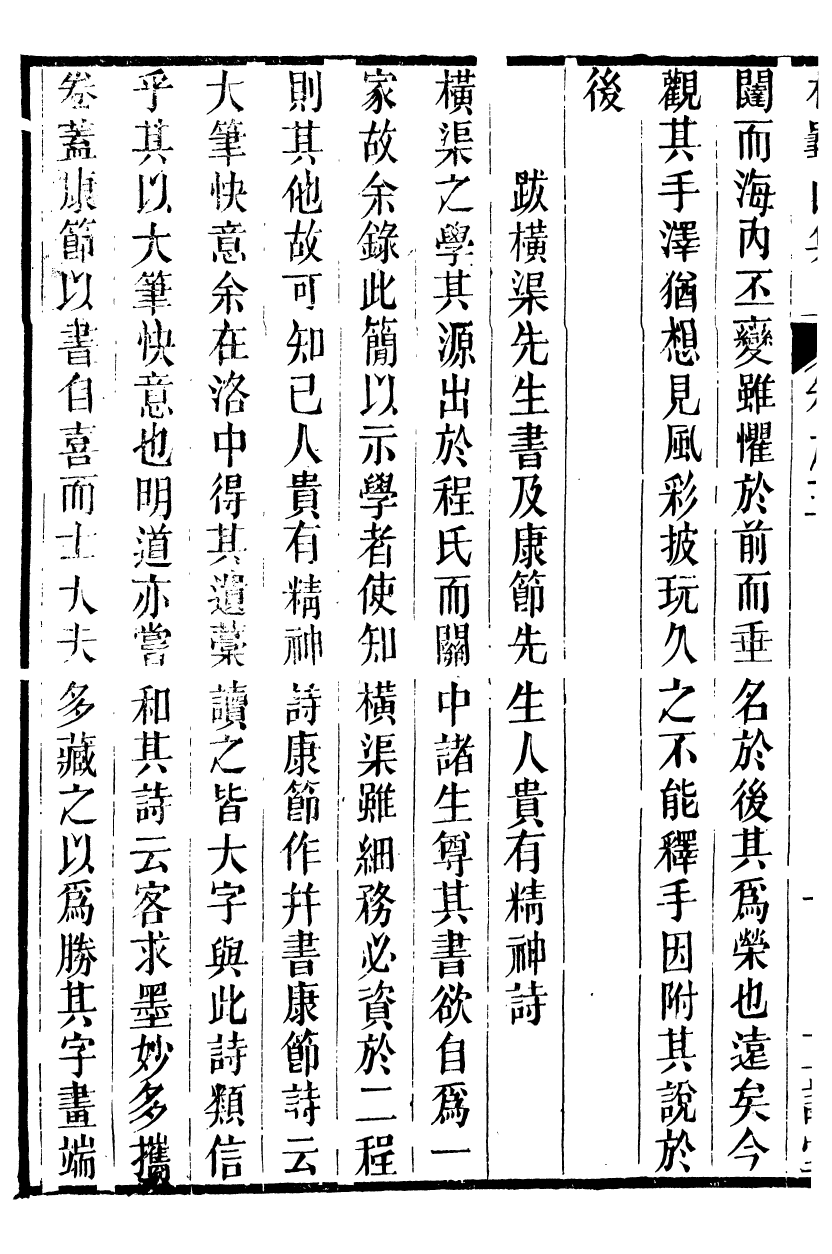 闥而海内丕變雖懼於前而垂名於後其爲榮也遠矣今
觀其手澤猶想見風彩披玩久之不能釋手因附其說於
後
跋橫渠先生書及康節先生人貴有精神詩
橫渠之學其源出於程氏而關中諸生尊其書欲自爲一
家故余錄此簡以示學者使知橫渠雖細務必資於二程
則其他故可知已人貴有精神詩康節作幷書康節詩云
大筆快意余在洛中得其遺藁讀之皆大字與此詩類信
乎其以大筆快意也明道亦嘗和其詩云客求墨妙多攜
卷蓋康節以書自喜而士大夫多藏之以爲勝其字畫端